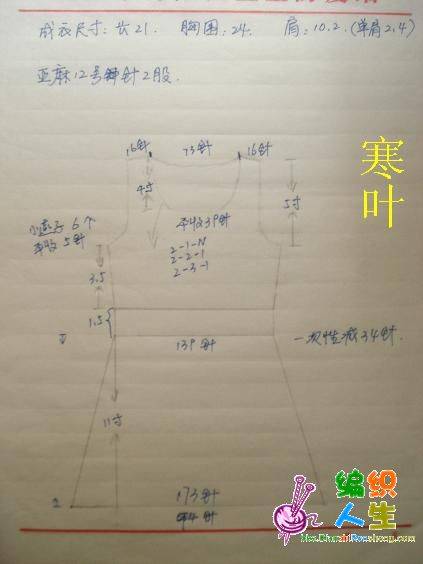 成衣尺寸: 长21. 胸围: 24. 肩: 10.2.(单肩2.4)
亚麻12号钟针2股.
16针 73针 16针
寒叶
4寸
5寸
小燕子6个
平收5针
平收39针
2-1-N
2-2-1
2-3-1
3.5
1.5
139针
一次性减34针.
11寸
173针
编织
人生